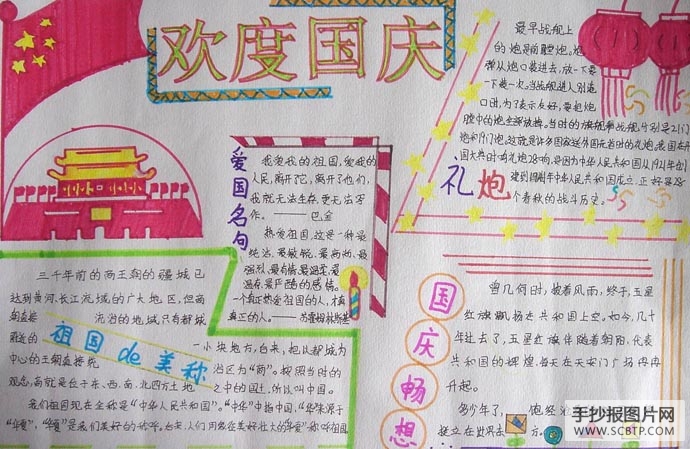 欢度国庆
最早战舰上
的炮是前膛炮。炮
弹从炮口装进去,放一下要
一下装一次。当战舰进入别国
口时,为了表示友好,要把炮
膛中的炮全部放掉。当时的旗舰和战舰分别是21门
炮和19门炮。这就是许多国家迎外国元首时的礼炮。我国在开
国大典时鸣礼炮28响,是因为中华人民共和国从1921年创
建到1949年中华人民共和国成立,正好是28
个春秋的战斗历史。
礼炮
爱国名句
我爱我的祖国,爱我的
人民,离开了它,离开了他们,
我就无法生存,更无法写
作。——巴金
热爱祖国,这是一种最
纯洁、最敏锐、最高尚、最
强烈、最有情、最温柔、最
温存、最严酷的感情。
一个真正热爱祖国的人,才真
真正的人。——苏霍姆林斯基
三千年前的西王朝的疆域已
达到黄河、长江流域的广大地区,但商
朝直接
流治的地域,只有都城
附近的
一小块地方,台来,把以都城为
中心的王朝直接死
治区为“商”。按照当时的
观念,商就是位于东、西、南、北四方土地
之中的国土,所以叫中国。
祖国de美称
我们祖国现在全称是“中华人民共和国”。“中华”中指中国,“华”来源于
“华夏”,“华夏”是我们美好的称呼。台来,人们用象征美好壮大的“华夏”称呼祖国
国庆畅想
曾几何时,披着风雨,终于,五星
红旗飘扬在共和国上空。如今,几十
年过去了,五星红旗伴随着朝阳,代表
共和国的辉煌,每天在天安门广场冉冉
升起。
多少年了,
饱经沧
挺立在世界东
方。
手抄报图片网
WWW.SCBTP.COM